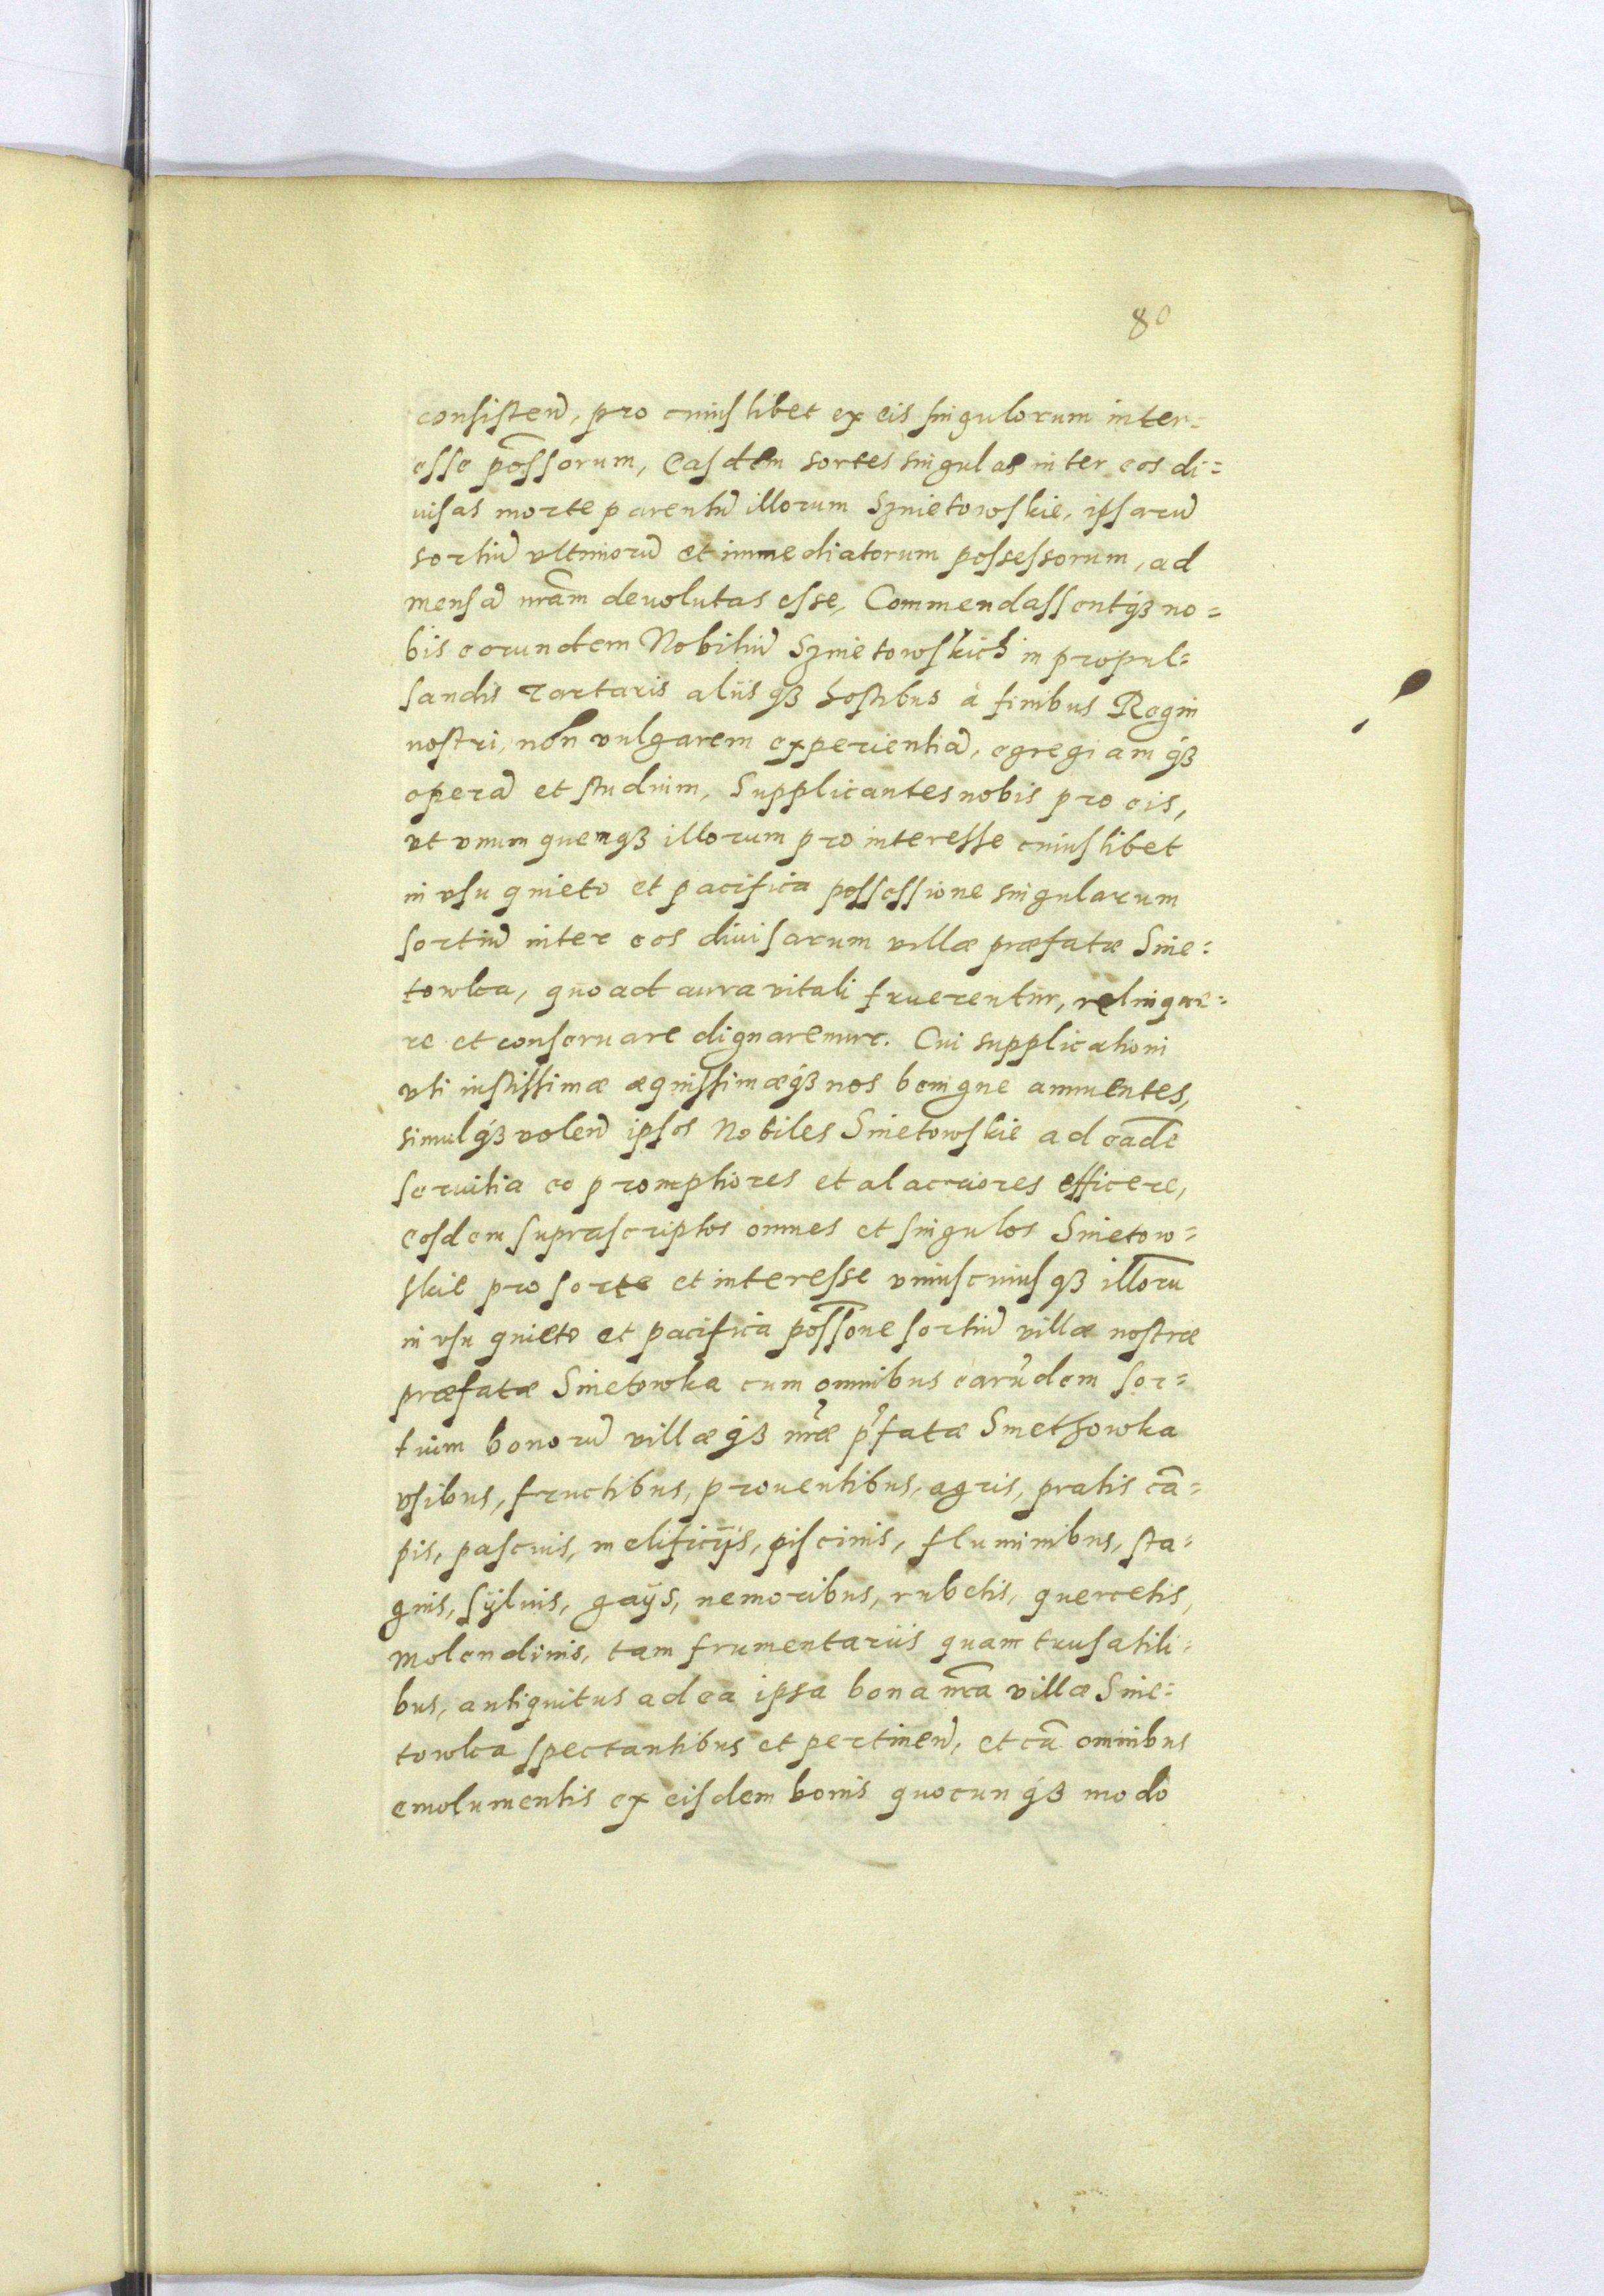 80
consisten̄, pro cuiuslibet ex eis singulorum inter=
esse pōssorum, Easdem sortes singulas inter eos di=
uisas morte parentū illorum Szmietowskie, ipsarū
sortiū vltimorū et immediatorum possessorum, ad
mensā nrām deuolutas esse, Commendassentq́ꝫ no=
bis eorundem Nobiliū Szmietowskich in propul=
sandis Tartaris aliisq́ꝫ hostibus à finibus Regni
nostri, non vulgarem experientiā, egregiamq́ꝫ
operā et studium, Supplicantes nobis pro eis,
vt vnumquemqꝫ illorum pro interesse cuiuslibet
in vsu quieto et pacifica possessione singularum
sortiū inter eos diuisarum villæ præfatæ Smie=
towka, quoad aura vitali fruerentur, relinque=
re et conseruare dignaremur. Cui supplicationi
vti iustissimæ æquissimæq́ꝫ nos benigne annuentes,
simulq́ꝫ volen̄ ipsos Nobiles Smietowskie ad eādē
seruitia eo promptiores et alacriores efficere,
eosdem suprascriptos omnes et singulos Smietow=
skie pro sorte et interesse vniuscuiusqꝫ illorū
in vsu quieto et pacifica pōssone sortiū villæ nostræ
præfatæ Smietowka cum omnibus earūdem sor=
tium bonorū villæq́ꝫ nr̄æ p̄fatæ Smethowka
vsibus, fructibus, prouentibus, agris, pratis cā=
pis, pascuis, melificijs, piscinis, fluminibus, sta=
gnis, syluis, gays, nemoribus, rubetis, quercetis,
molendinis, tam frumentariis quam trusatili=
bus, antiquitus ad ea ipsa bona nr̄a villæ Smie=
towka spectantibus et pertinen̄, et cū omnibus
emolumentis ex eisdem bonis quocunq́ꝫ modo